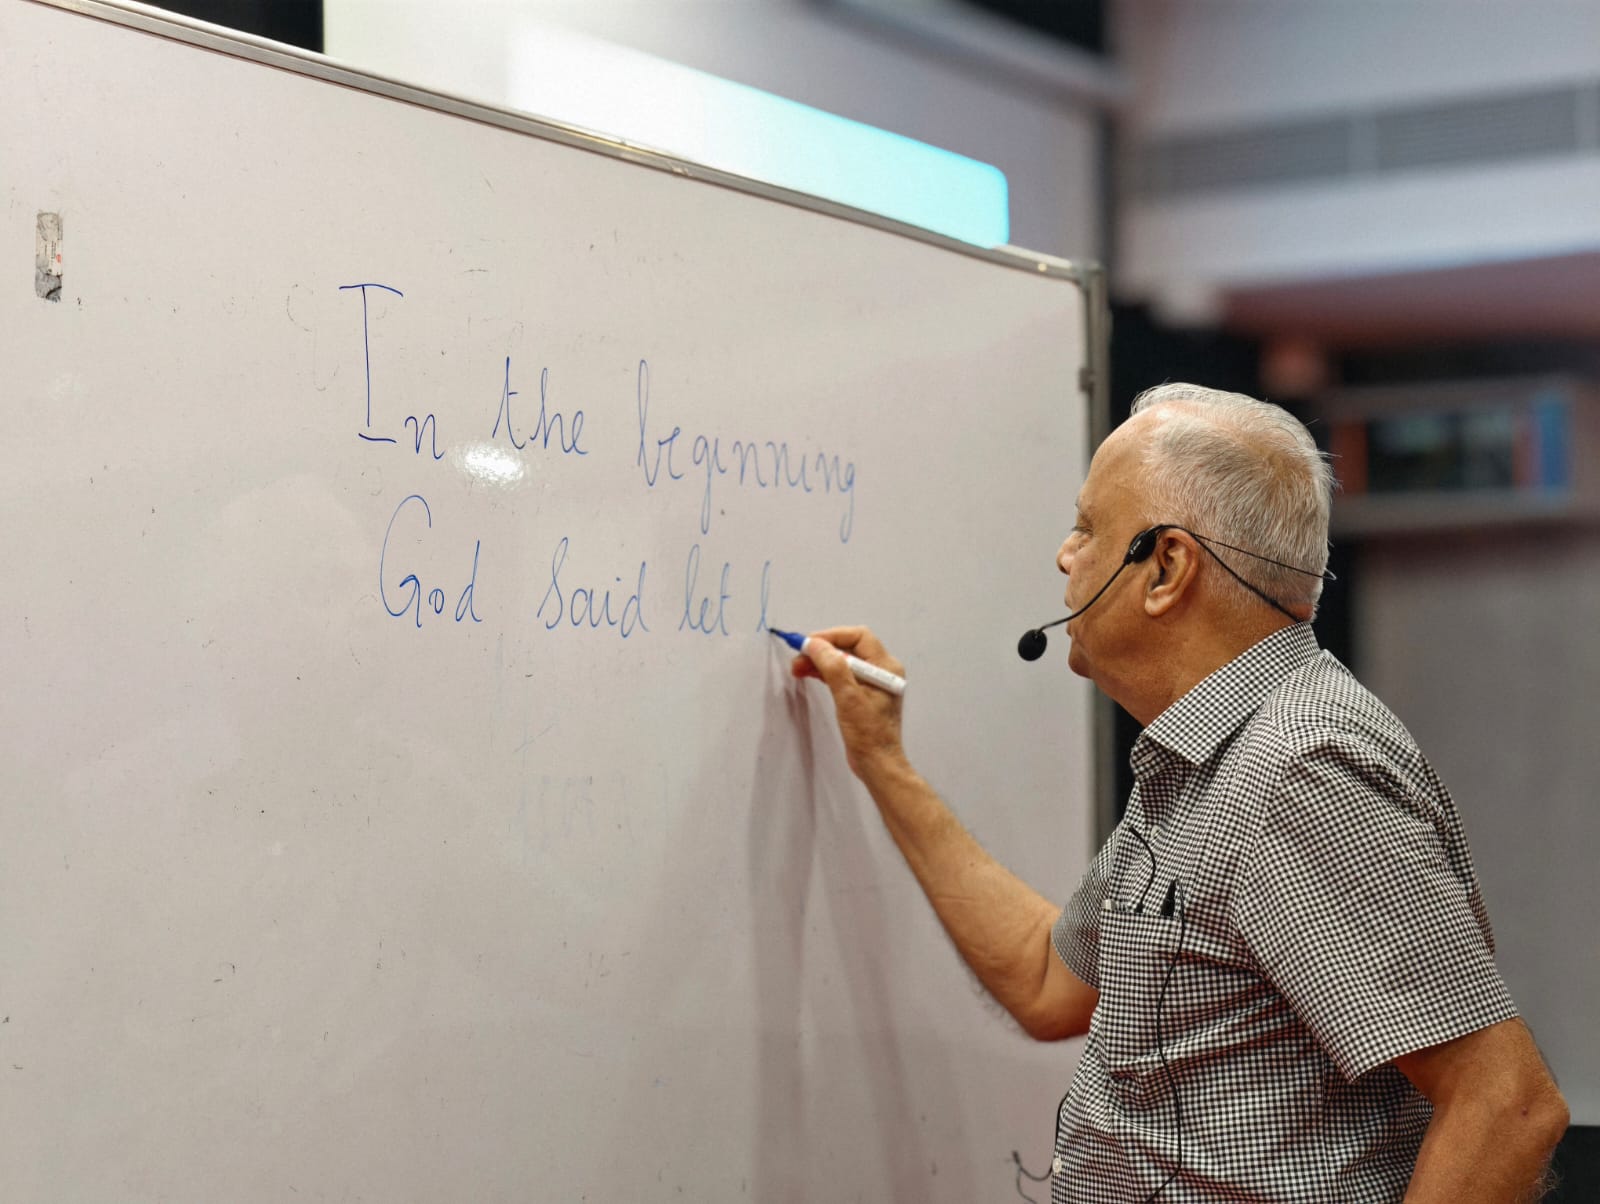 In the beginning
God said let